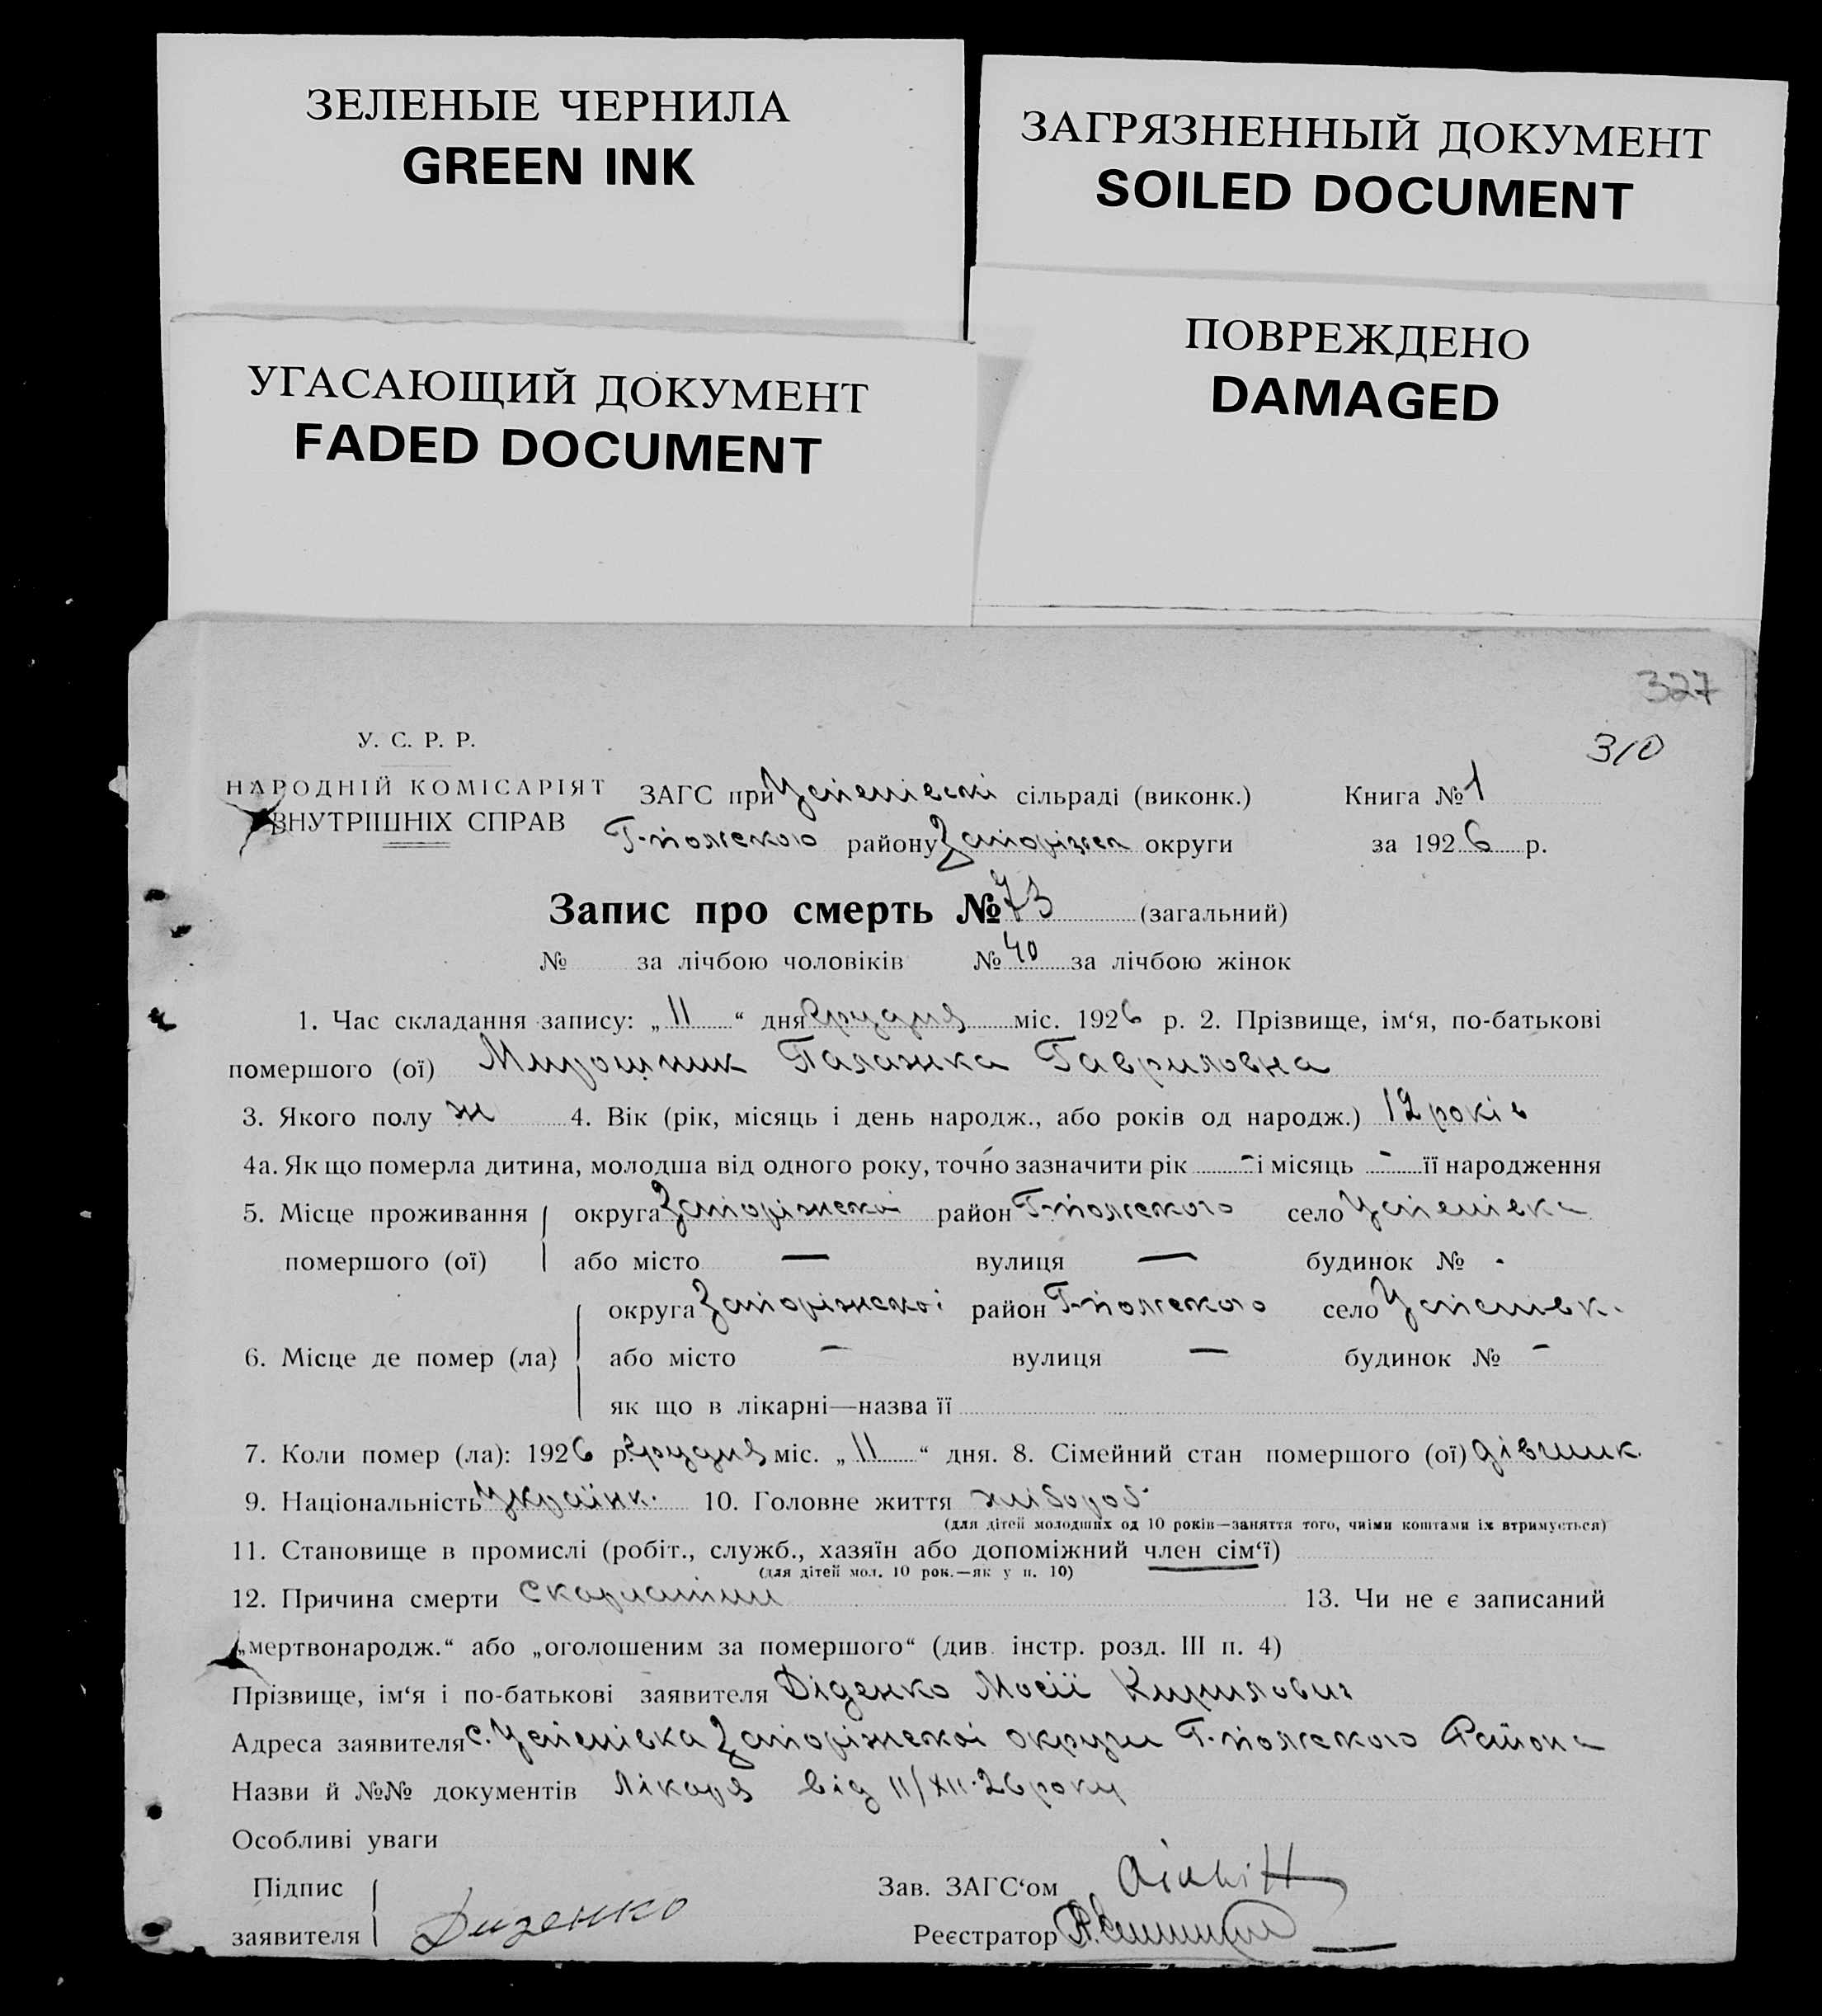 ЗЕЛЕНЫЕ ЧЕРНИЛА
GREEN INK
ЗАГРЯЗНЕННЫЙ ДОКУМЕНТ
SOILED DOCUMENT
УГАСАЮЩИЙ ДОКУМЕНТ
FADED DOCUMENT
ПОВРЕЖДЕНО
DAMAGED
327
310
У. С. Р. Р.
НАРОДНІЙ КОМІСАРІЯТ
ВНУТРІШНІХ СПРАВ
ЗАГС при Успенівскі сільраді (виконк.) Книга № 1
Г-польского району Запоріжск округи за 1926 р.
Запис про смерть № 73 (загальний)
№ за лічбою чоловіків № 40 за лічбою жінок
1. Час складання запису: „11“ дня Грудня міс. 1926 р. 2. Прізвище, ім‘я, по-батькові
помершого (ої) Мирошник Палажка Гавриловна
3. Якого полу ж 4. Вік (рік, місяць і день народж., або років од народж.) 12 років
4а. Як що померла дитина, молодша від одного року, точно зазначити рік - і місяць - її народження
5. Місце проживання округа Запоріжскоі район Г-польского село Успенівка
помершого (ої) або місто — вулиця — будинок № -
округа Запоріжскоі район Г-польского село Успенівк.
6. Місце де помер (ла) або місто — вулиця — будинок № -
як що в лікарні—назва її
7. Коли помер (ла): 1926 р. Грудня міс. „11“ дня. 8. Сімейний стан помершого (ої) дівчинк.
9. Національність Украінк. 10. Головне життя хлібороб.
(для дітей молодших од 10 років—заняття того, чиїми коштами їх втримується)
11. Становище в промислі (робіт., служб., хазяїн або допоміжний член сім‘ї)
(для дітей мол. 10 рок.—як у п. 10)
12. Причина смерти Скарлатини 13. Чи не є записаний
„мертвонародж.“ або „оголошеним за помершого“ (див. інстр. розд. III п. 4)
Прізвище, ім‘я і по-батькові заявителя Діденко Мосій Кирилович
Адреса заявителя с. Успенівка Запоріжскоі округи Г-польского Района
Назви й №№ документів Лікаря від 11/XII-26 року
Особливі уваги
Підпис Зав. ЗАГС‘ом
заявителя Диденко Реєстратор